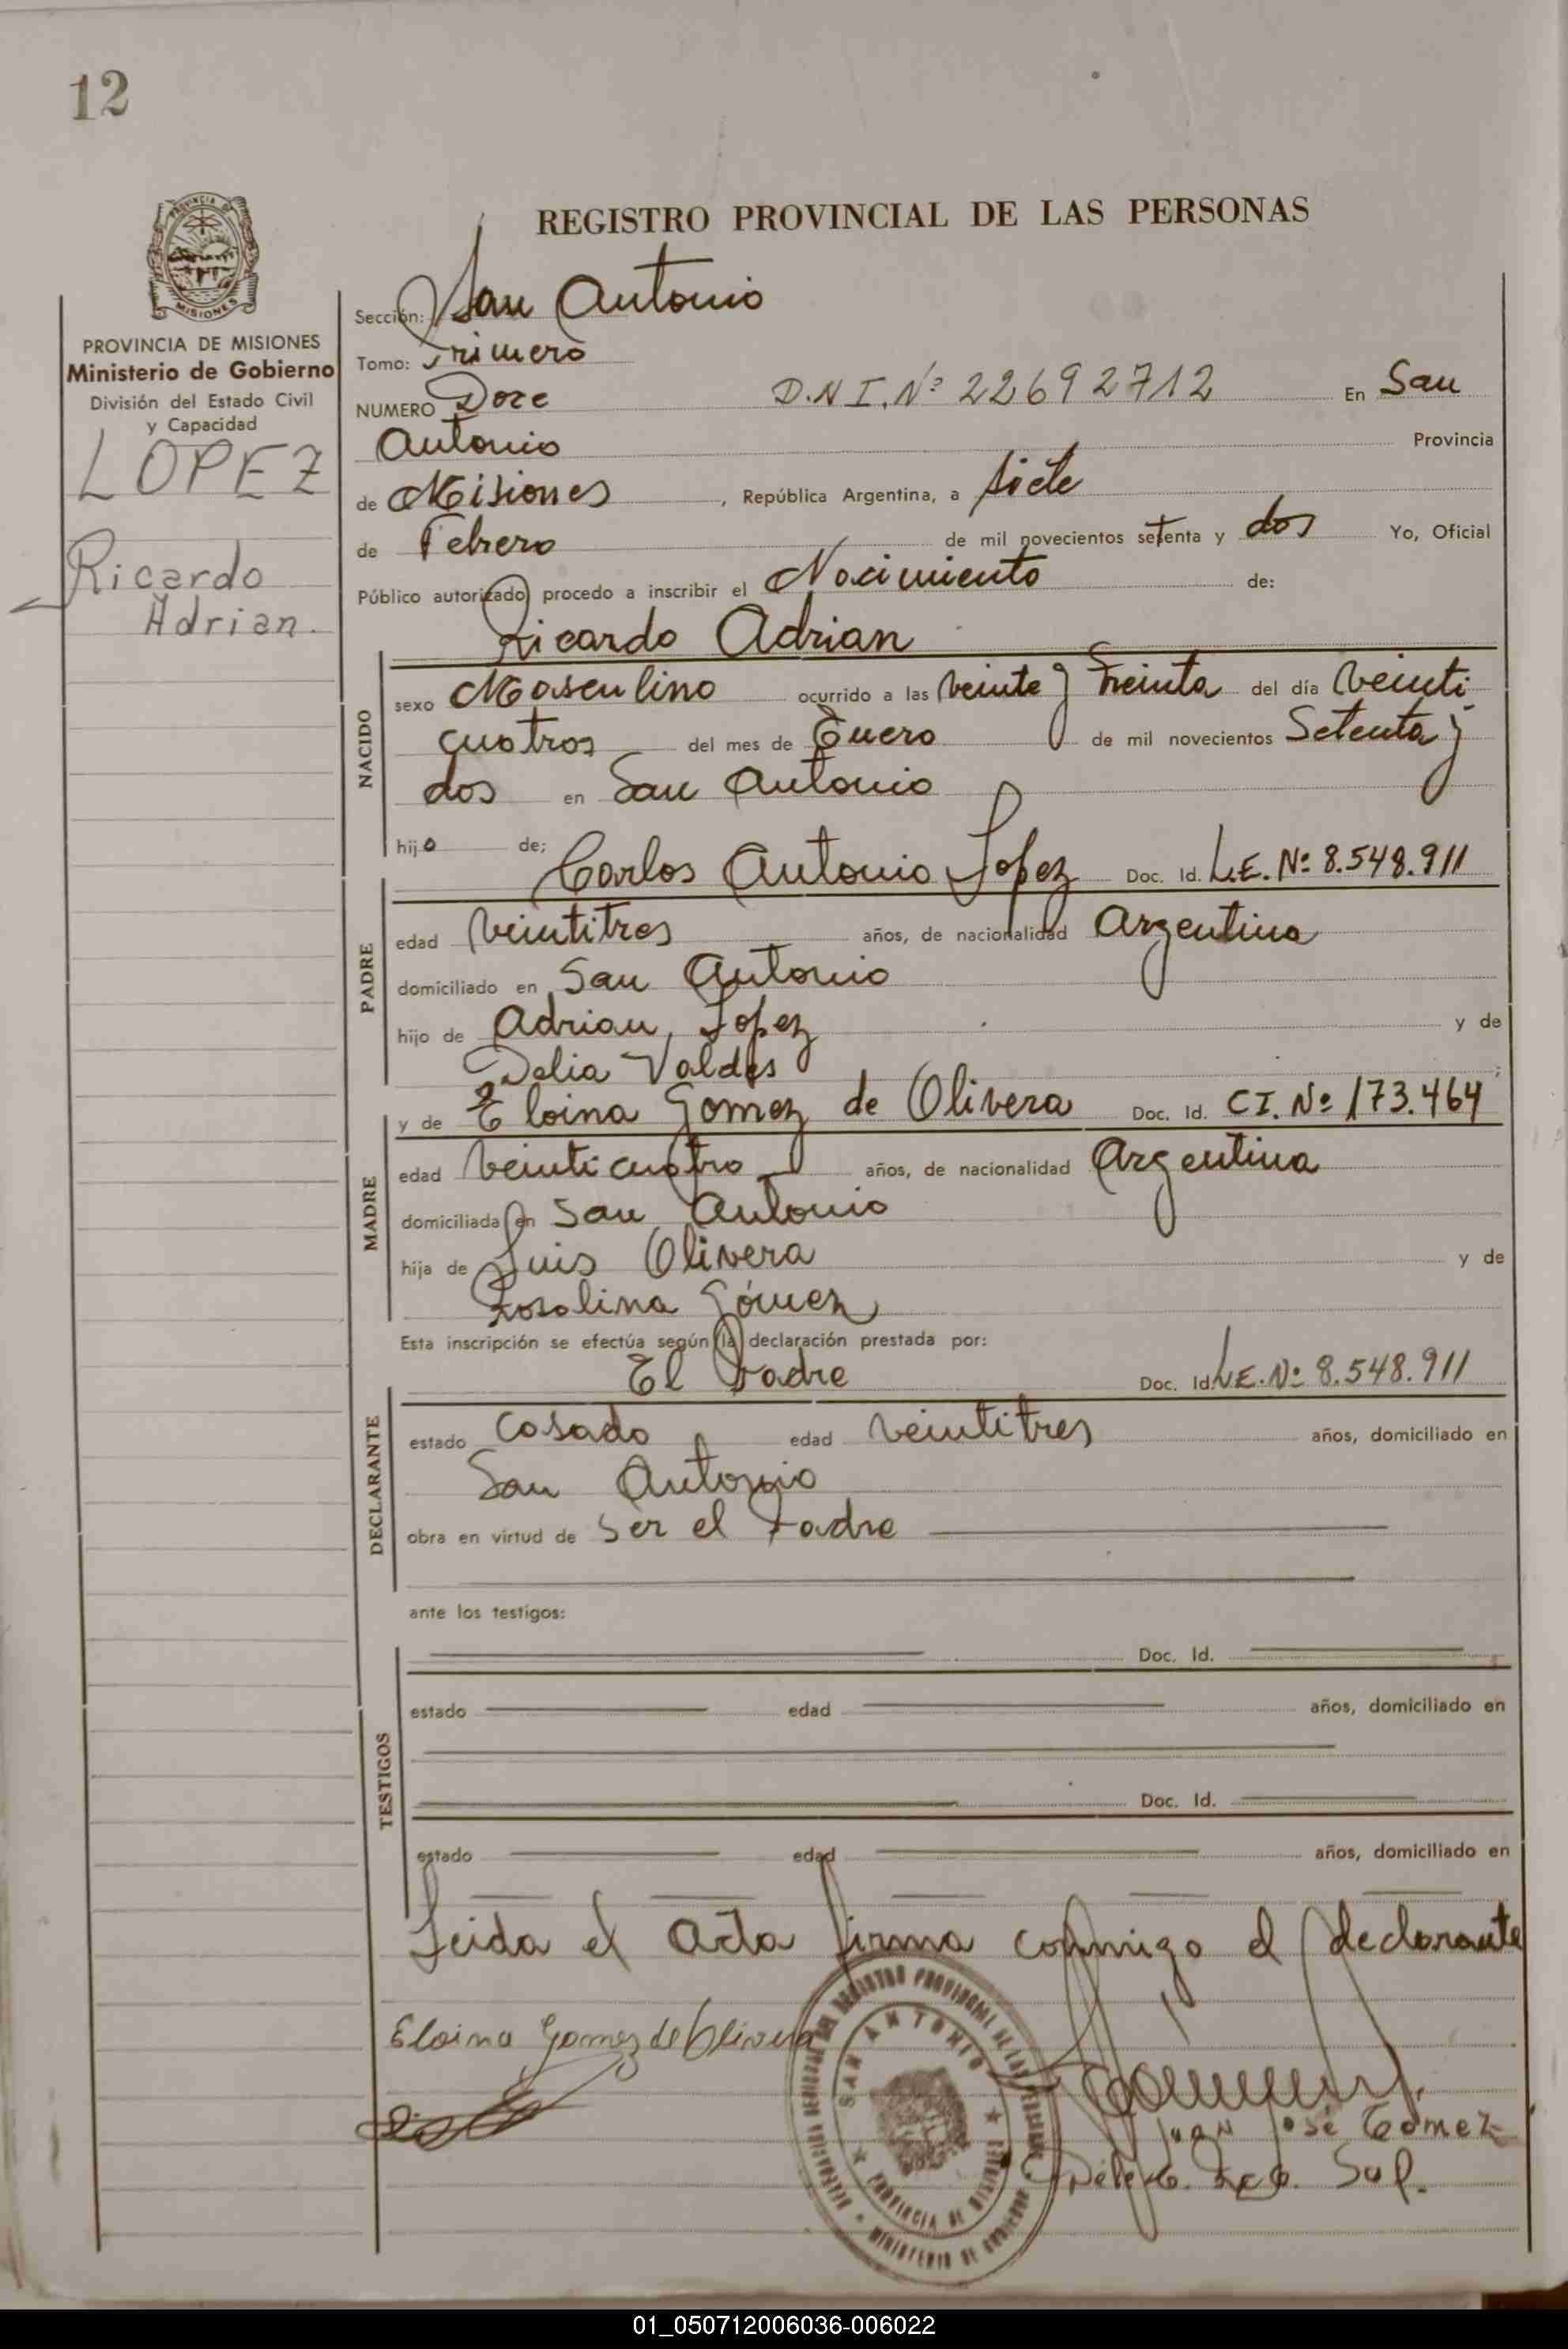 12
REGISTRO PROVINCIAL DE LAS PERSONAS
PROVINCIA DE MISIONES
Ministerio de Gobierno
División del Estado Civil
y Capacidad
LOPEZ
Ricardo
Adrian.
Sección: San Antonio
Tomo: Primero
NUMERO Doce D.N.I. Nº 22692712 En San
Antonio Provincia
de Misiones, República Argentina, a siete
de Febrero de mil novecientos setenta y dos Yo, Oficial
Público autorizado procedo a inscribir el Nacimiento de:
Ricardo Adrian
NACIDO
sexo Masculino ocurrido a las veinte y treinta del día veinti
cuatros del mes de Enero de mil novecientos Setenta y
dos en San Antonio
hijo de; Carlos Antonio Lopez Doc. Id. L.E. Nº 8.548.911
PADRE
edad veintitres años, de nacionalidad Argentina
domiciliado en San Antonio
hijo de Adrian Lopez y de
Delia Valdes ;
y de Eloina Gomez de Olivera Doc. Id. CI. Nº 173.464
MADRE
edad veinticuatro años, de nacionalidad Argentina
domiciliada en San Antonio
hija de Luis Olivera y de
Rosolina Gómez
Esta inscripción se efectúa según la declaración prestada por:
El Padre Doc. Id. L.E. Nº 8.548.911
DECLARANTE
estado Casado edad veintitres años, domiciliado en
San Antonio
obra en virtud de Ser el Padre
ante los testigos:
TESTIGOS
Doc. Id.
estado edad años, domiciliado en
Doc. Id.
estado edad años, domiciliado en
Leida el Acta firma conmigo el declarante
Eloina Gomez de Olivera
SAN ANTONIO
PROVINCIA DE MISIONES
MINISTERIO DE GOBIERNO
Juan José Gomez
Sup.
01_050712006036-006022